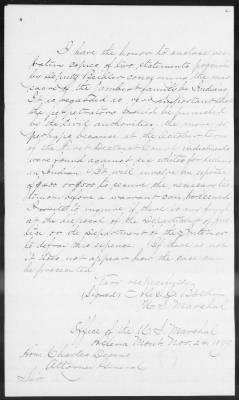 I have the honor to enclose ver-
batim copies of two statements
by Deputy concerning the mas-
sacre of the family by Indians.
It is regarded as important that
the perpetrators should be punished
by the civil authorities, the more so
perhaps because at the October term
of the District Court indictments
were found against six whites for killing
an Indian. It will involve an expense
of $ or $ to secure the necessary tes-
timony before a warrant can be issued.
I write to inquire if there is any fund
at the disposal of the Department of Jus-
tice or the Department of the Interior
to defray this expense. If there is not
it does not appear how the case can
be prosecuted.
Very respectfully,
(Signed)
U. S. Marshal
Office of the U. S. Marshal
Helena Mont. Nov. 24
Hon. Charles Devens
Attorney General
Sir